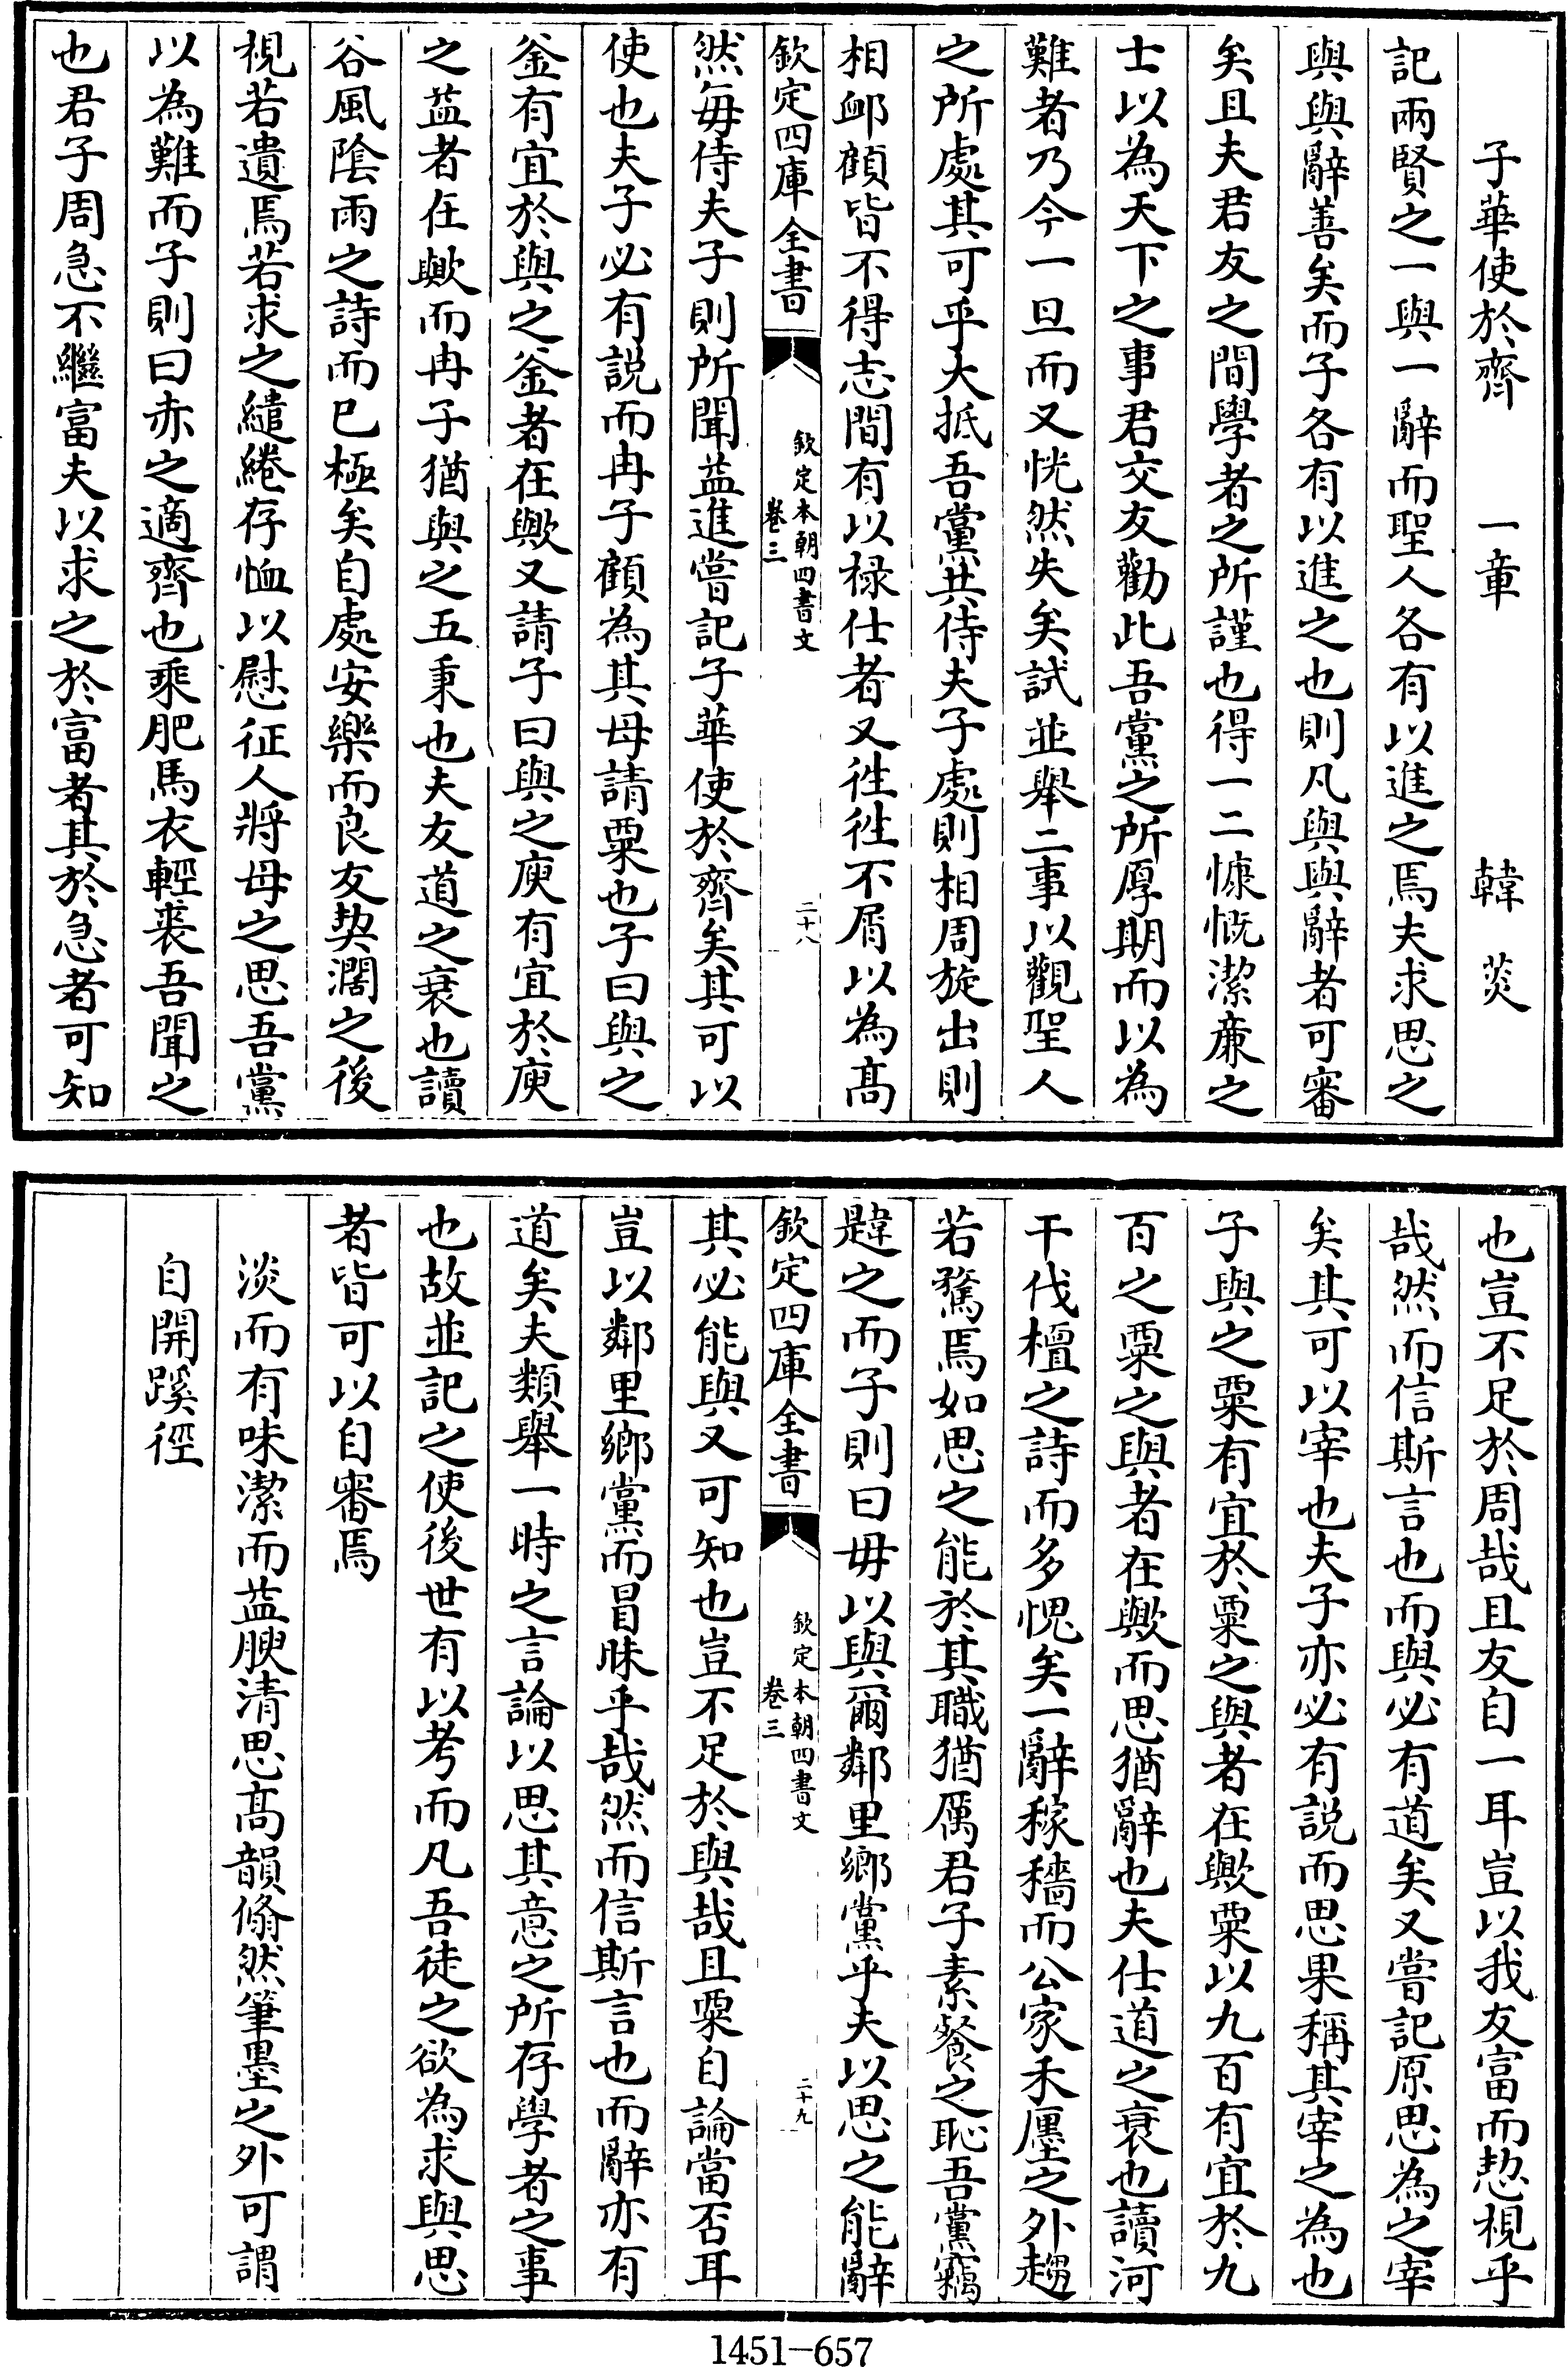 子華使於齊　一章　韓菼
記兩賢之一與一辭而聖人各有以進之焉夫求思之
與與辭善矣而子各有以進之也則凡與與辭者可審
矣且夫君友之間學者之所謹也得一二慷慨潔亷之
士以為天下之事君交友勸此吾黨之所厚期而以為
難者乃今一旦而又恍然失矣試並舉二事以觀聖人
之所處其可乎大抵吾黨共侍夫子處則相周旋出則
相䘏顧皆不得志間有以禄仕者又徃徃不屑以為高
欽定四庫全書
欽定本朝四書文
卷三
二十八
然每侍夫子則所聞益進嘗記子華使於齊矣其可以
使也夫子必有説而冉子顧為其母請粟也子曰與之
釜有宜於與之釜者在歟又請子曰與之庾有宜於庾
之益者在歟而冉子猶與之五秉也夫友道之衰也讀
谷風陰雨之詩而已極矣自處安樂而良友契濶之後
視若遺焉若求之繾綣存恤以慰征人將母之思吾黨
以為難而子則曰赤之適齊也乘肥馬衣輕裘吾聞之
也君子周急不繼富夫以求之於富者其於急者可知
也豈不足於周哉且友自一耳豈以我友富而恝視乎
哉然而信斯言也而與必有道矣又嘗記原思為之宰
矣其可以宰也夫子亦必有説而思果稱其宰之為也
子與之粟有宜於粟之與者在歟粟以九百有宜於九
百之粟之與者在歟而思猶辭也夫仕道之衰也讀河
干伐檀之詩而多愧矣一辭稼穡而公家禾廛之外趨
若騖焉如思之能於其職猶厲君子素餐之恥吾黨竊
韙之而子則曰毋以與爾鄰里鄉黨乎夫以思之能辭
欽定四庫全書
欽定本朝四書文
卷三
二十九
其必能與又可知也豈不足於與哉且粟自論當否耳
豈以鄰里鄉黨而冒昧乎哉然而信斯言也而辭亦有
道矣夫類舉一時之言論以思其意之所存學者之事
也故並記之使後世有以考而凡吾徒之欲為求與思
者皆可以自審焉
淡而有味潔而益腴清思高韻翛然筆墨之外可謂
自開蹊徑
1451-657